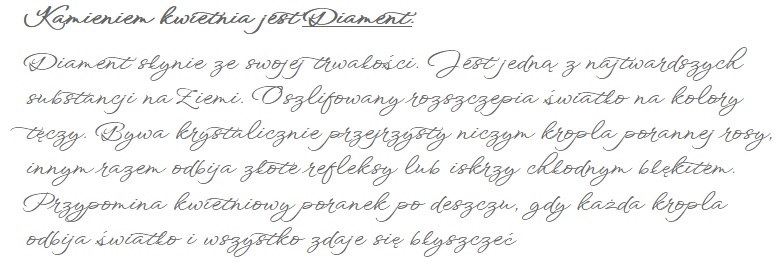 Kamieniem kwietnia jest Diament.
Diament słynie ze swojej trwałości. Jest jedną z najtwardszych
substancji na Ziemi. Oszlifowany rozszczepia światło na kolory
tęczy. Bywa krystalicznie przejrzysty niczym kropla porannej rosy,
innym razem odbija złote refleksy lub iskrzy chłodnym błękitem.
Przypomina kwietniowy poranek po deszczu, gdy każda kropla
odbija światło i wszystko zdaje się błyszczeć